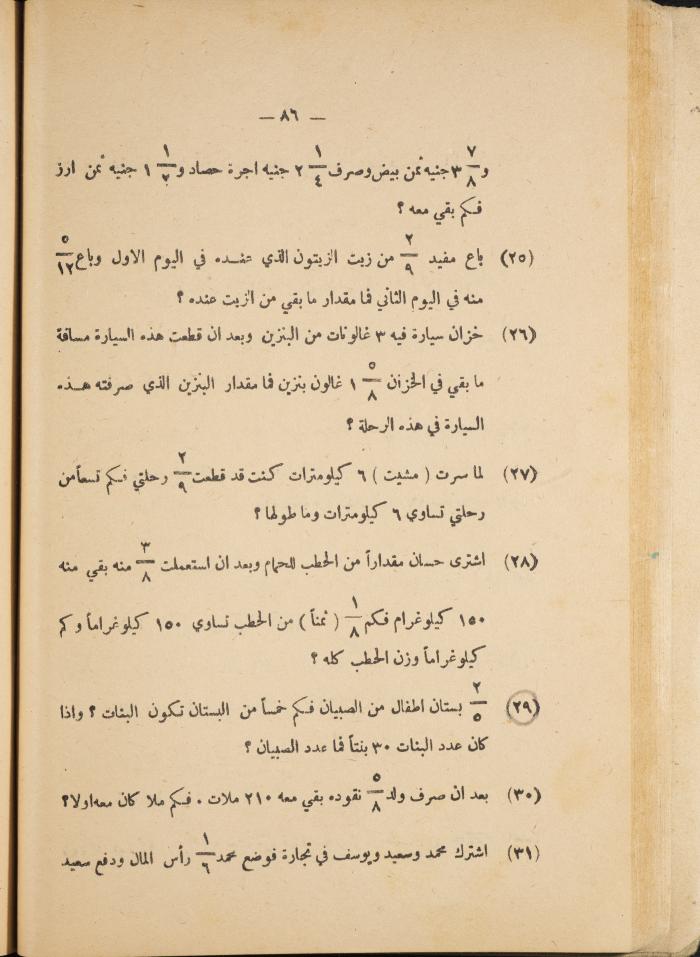 — ٨٦ —
و ٣ ٧/٨ جنيه ثمن بيض وصرف ٢ ١/٤ جنيه اجرة حصاد و ١ ١/٢ جنيه ثمن ارز
فكم بقي معه ؟
(٢٥) باع مفيد ٢/٩ من زيت الزيتون الذي عنده في اليوم الاول وباع ٥/١٢
منه في اليوم الثاني فما مقدار ما بقي من الزيت عنده ؟
(٢٦) خزان سيارة فيه ٣ غالونات من البنزين وبعد ان قطعت هذه السيارة مسافة
ما بقي في الخزان ١ ٥/٨ غالون بنزين فما مقدار البنزين الذي صرفته هذه
السيارة في هذه الرحلة ؟
(٢٧) لما سرت ( مشيت ) ٦ كيلومترات كنت قد قطعت ٢/٩ رحلتي فكم تسعاً من
رحلتي تساوي ٦ كيلومترات وما طولها ؟
(٢٨) اشترى حسان مقداراً من الحطب للحمام وبعد ان استعملت ٣/٨ منه بقي منه
١٥٠ كيلوغرام فكم ١/٨ ( ثمناً ) من الحطب تساوي ١٥٠ كيلوغراماً وكم
كيلوغراماً وزن الحطب كله ؟
(٢٩) ٢/٥ بستان اطفال من الصبيان فكم خمساً من البستان تكون البنات ؟ واذا
كان عدد البنات ٣٠ بنتاً فما عدد الصبيان ؟
(٣٠) بعد ان صرف ولد ٥/٨ نقوده بقي معه ٢١٠ ملات . فكم ملا كان معه اولا؟
(٣١) اشترك محمد وسعيد ويوسف في تجارة فوضع محمد ١/٦ رأس المال ودفع سعيد